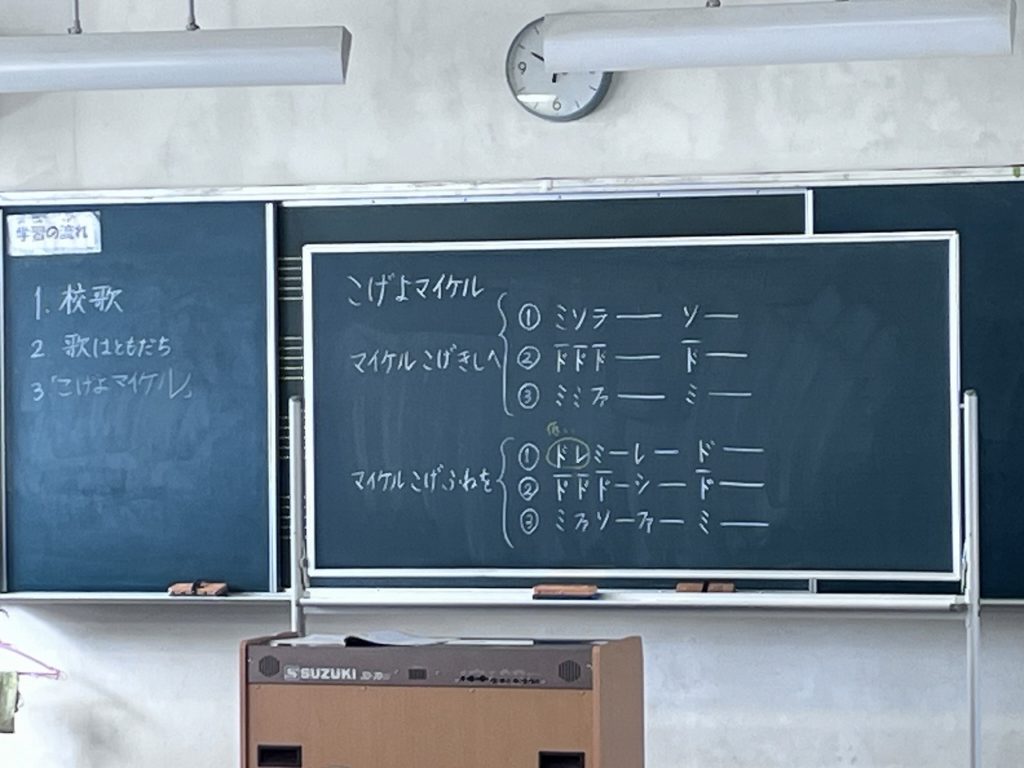 学習の流れ
1. 校歌
2 歌はともだち
3「こげよマイケル」
こげよマイケル
マイケルこげきしへ
① ミソラ―― ソ――
② ド̅ド̅ド̅―― ド̅――
③ ミミファ―― ミ――
マイケルこげふねを
① ドレミーレー ド――
② ド̅ド̅ド̅ーシー ド̅――
③ ミファソーファー ミ――
9
6
SUZUKI